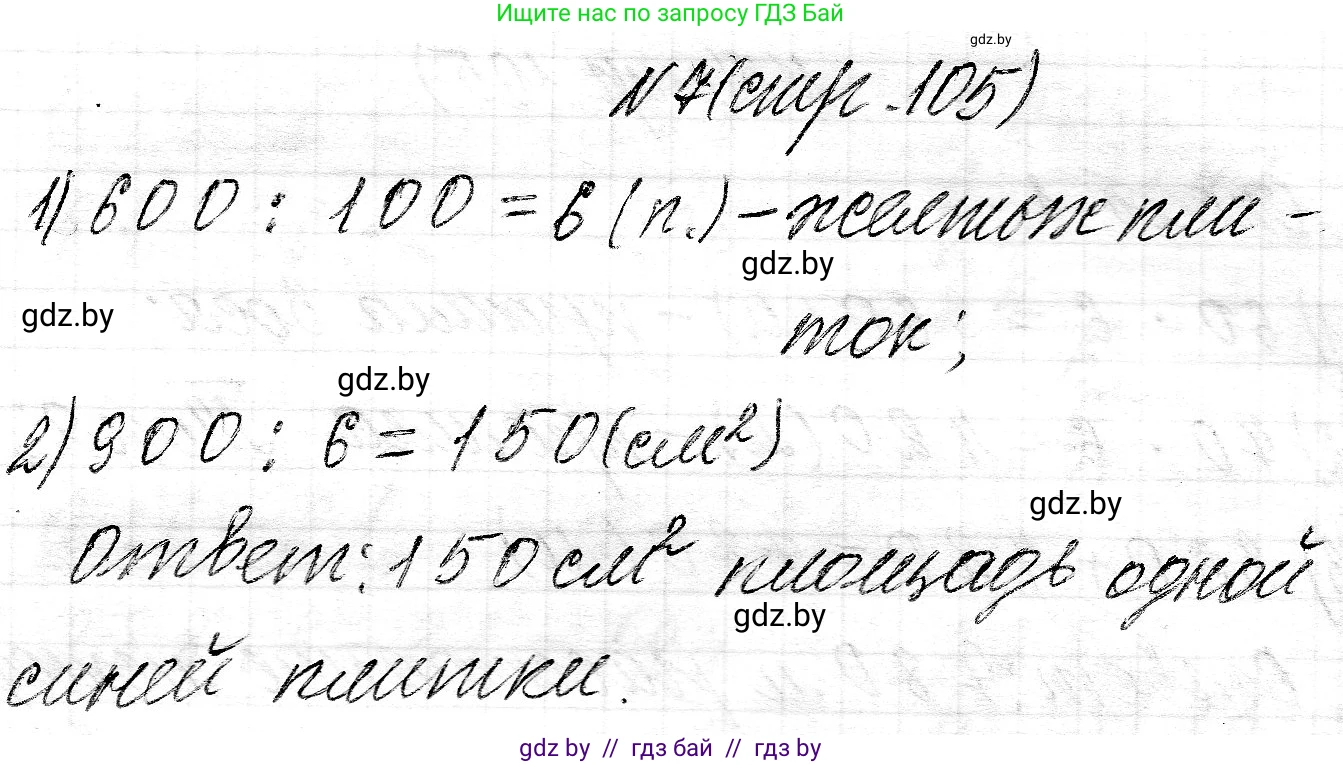 Ищите нас по запросу ГДЗ Бай
gdz.by
№7(стр.105)
1) 600 : 100 = 6 (п.) – желтых пли-
gdz.by
gdz.by
ток;
gdz.by
2) 900 : 6 = 150(см²)
gdz.by
Ответ: 150 см² площадь одной
gdz.by
синей плитки.
gdz by // гдз бай // гдз by